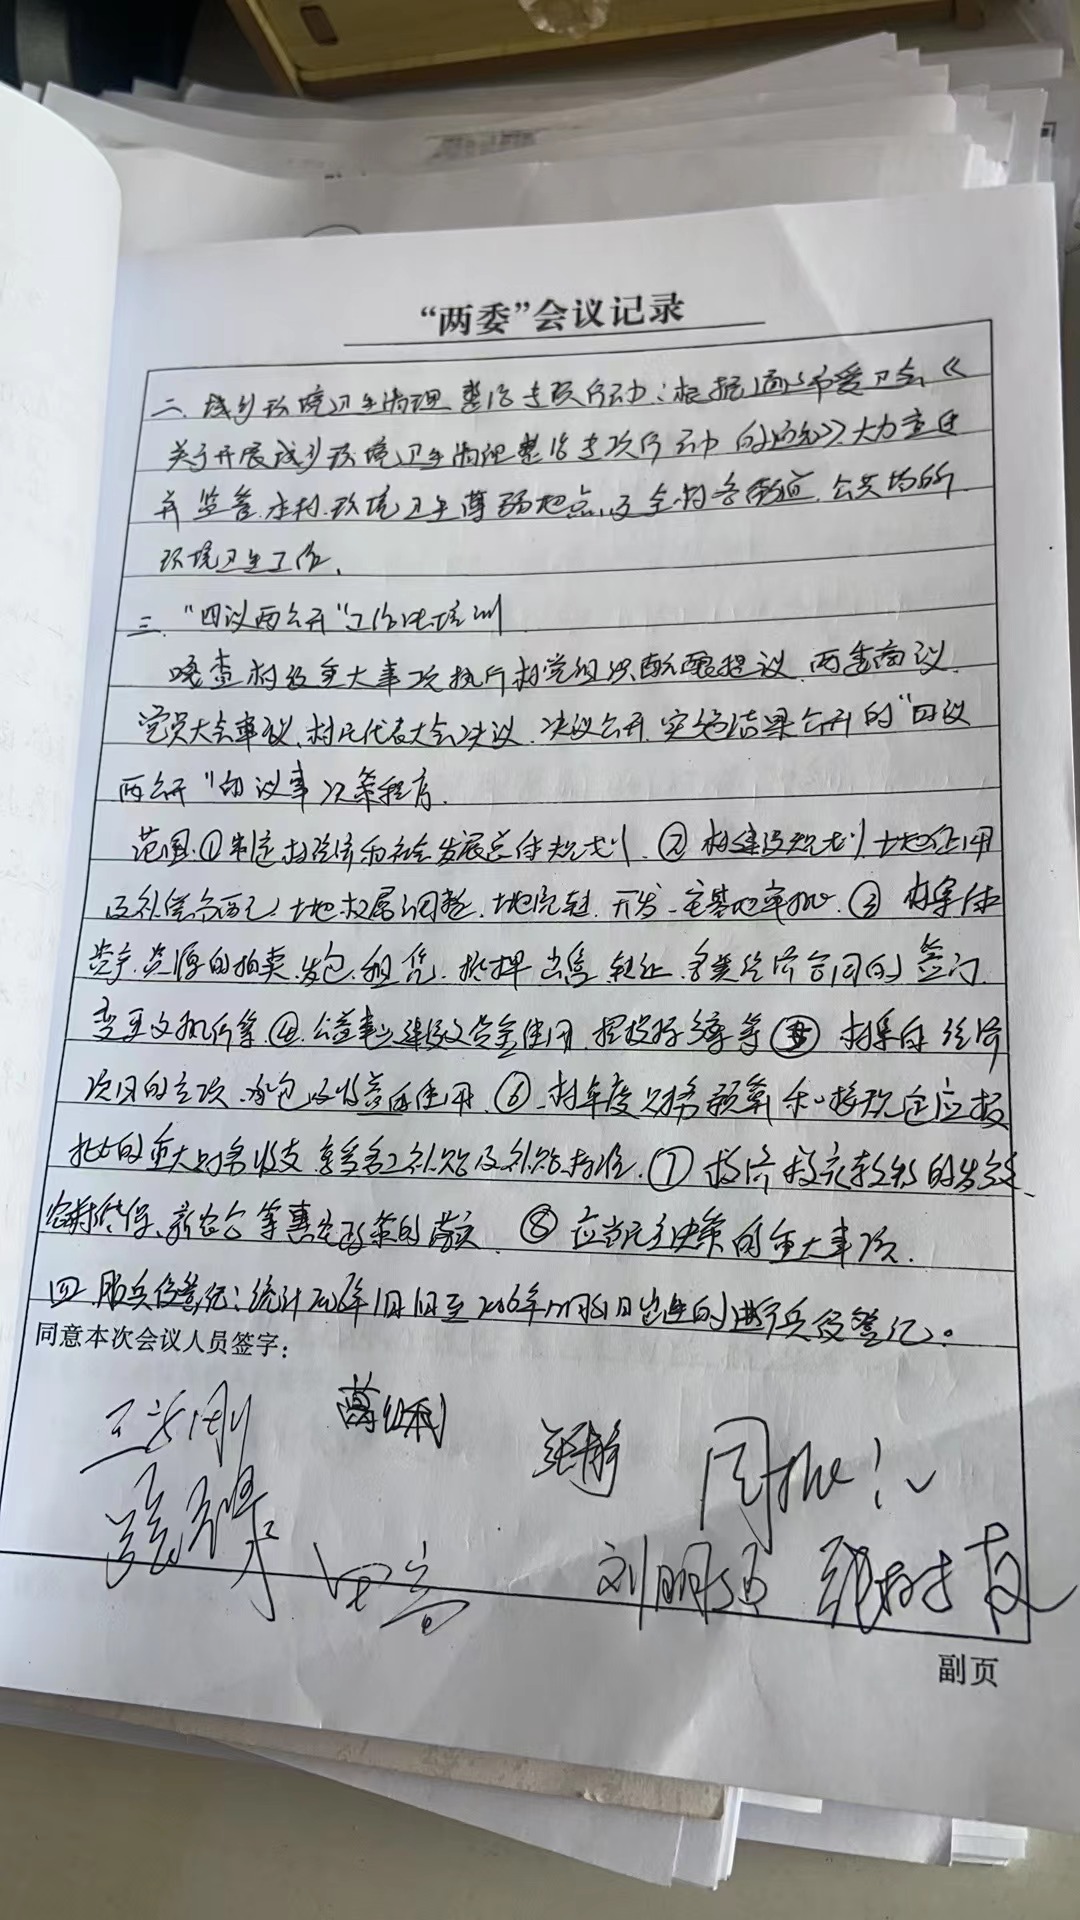 “两委”会议记录
二、城乡环境卫生清理整治专项行动：根据通山市爱卫会《
关于开展城乡环境卫生清理整治专项行动的通知》大力宣传
并监管本村环境卫生薄弱地点及全村各街道、公共场所
环境卫生工作、
三、“四议两公开”工作法培训
村级重大事项执行村党组织酝酿提议、两委商议、
党员大会审议、村民代表大会决议、决议公开、实施结果公开的“四议
两公开”的议事决策程序.
范围①制定村经济和社会发展总体规划、②村建设规划、土地征用
及补偿分配、土地权属调整、土地流转、开发、宅基地审批、③村集体
资产、资源的拍卖、发包、租凭、抵押出售转让、各类经济合同的签订、
变更及执行等、④公益事业建设及资金使用、招投标方案等⑤村集体经济
项目的立项、承包及收益的使用、⑥、村年度财务预算和按规定应报
批的重大财务收支、享受务工补贴及补贴标准、⑦救济救灾款物的发放、
农村低保、新农合等惠农政策的落实、⑧应当民主决策的重大事项.
四、服兵役登记：统计2006年1月1日至2006年12月31日出生的进行兵役登记。
同意本次会议人员签字：
刘明强
副页